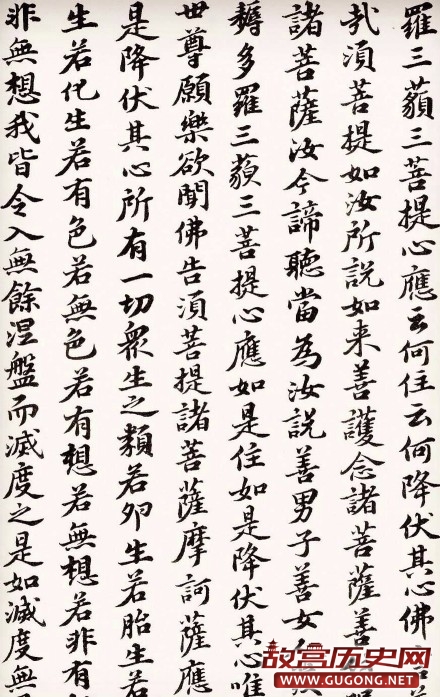 羅三藐三菩提心應云何住云何降伏其心佛
哉須菩提如汝所説如来善護念諸菩薩善
諸菩薩汝今諦聽當為汝説善男子善女
耨多羅三藐三菩提心應如是住如是降伏其心唯
世尊願樂欲聞佛告須菩提諸菩薩摩訶薩應
是降伏其心所有一切衆生之類若卵生若胎生若
生若化生若有色若無色若有想若無想若非有
非無想我皆令入無餘涅盤而滅度之是如滅度無
故宫历史网
WWW.GUGONG.NET